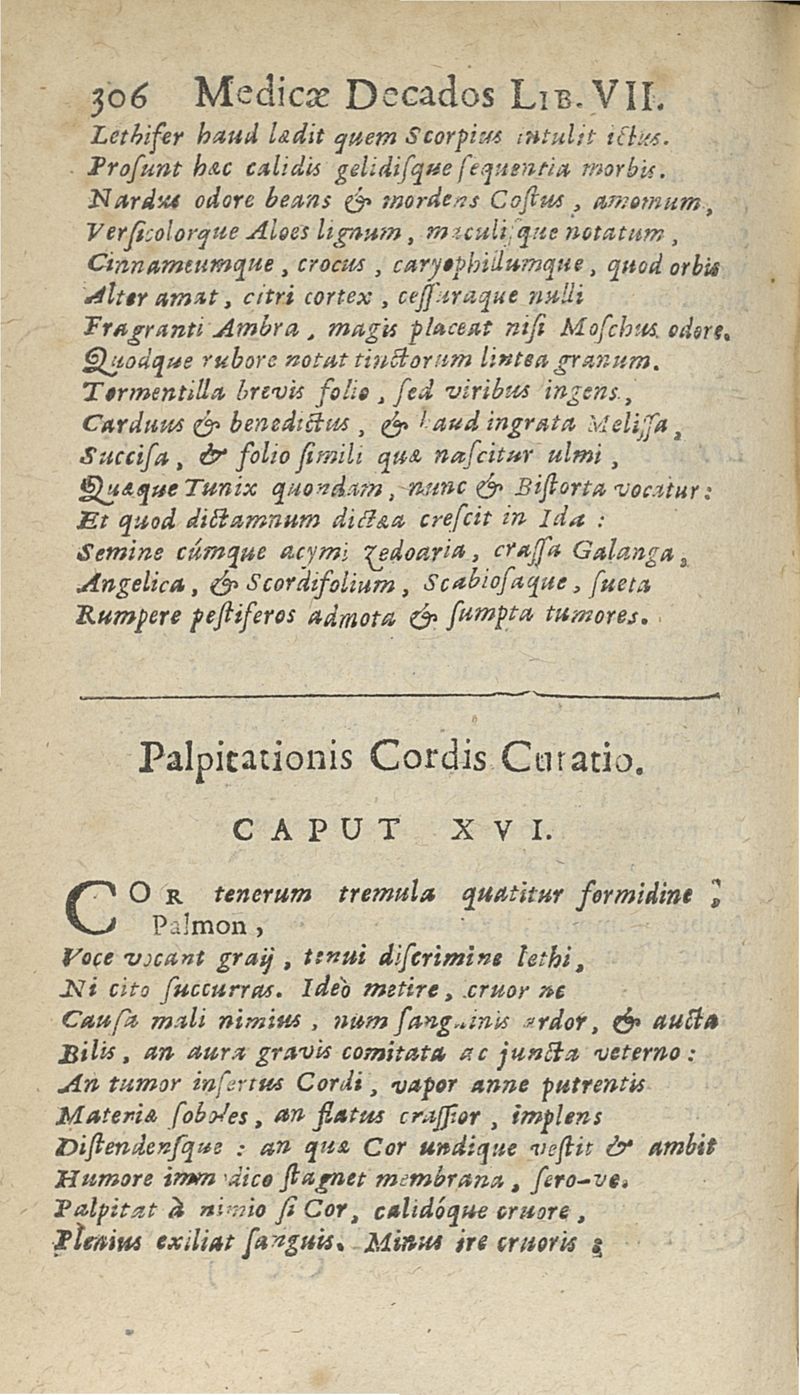 306 Medicæ Decados LIB. VII.
Lethifer haud lædit quem Scorpius intulit ictus.
Prosunt hæc calidis gelidisque sequentia morbis.
Nardus odore beans & mordens Costus, amomum,
Versicolorque Aloes lignum, maculisque notatum,
Cinnameumque, crocus, caryophillumque, quod orbis
Alter amat, citri cortex, cessuraque nulli
Fragranti Ambra, magis placeat nisi Moschus odore.
Quodque rubore notat tinctorum lintea granum.
Tormentilla brevis folio, sed viribus ingens,
Carduus & benedictus, & haud ingrata Melissa,
Succisa, & folio simili quæ nascitur ulmi,
Quæque Tunix quondam, nunc & Bistorta vocatur:
Et quod dictamnum dictæa crescit in Ida:
Semine cúmque acymi Zedoaria, crassa Galanga,
Angelica, & Scordifolium, Scabiosaque, sueta
Rumpere pestiferos admota & sumpta tumores.
Palpitationis Cordis Curatio.
CAPUT XVI.
COR tenerum tremula quatitur formidine;
Palmon,
Voce vocant graij, tenui discrimine lethi,
Ni cito succurras. Ideò metire, cruor ne
Causa mali nimius, num sanguinis ardor, & aucta
Bilis, an aura gravis comitata ac juncta veterno:
An tumor insertus Cordi, vapor anne putrentis
Materiæ soboles, an flatus crassior, implens
Distendensque: an quæ Cor undique vestit & ambit
Humore immodico stagnet membrana, sero-ve.
Palpitat à nimio si Cor, calidóque cruore,
Plenius exiliat sanguis. Minus ire cruoris